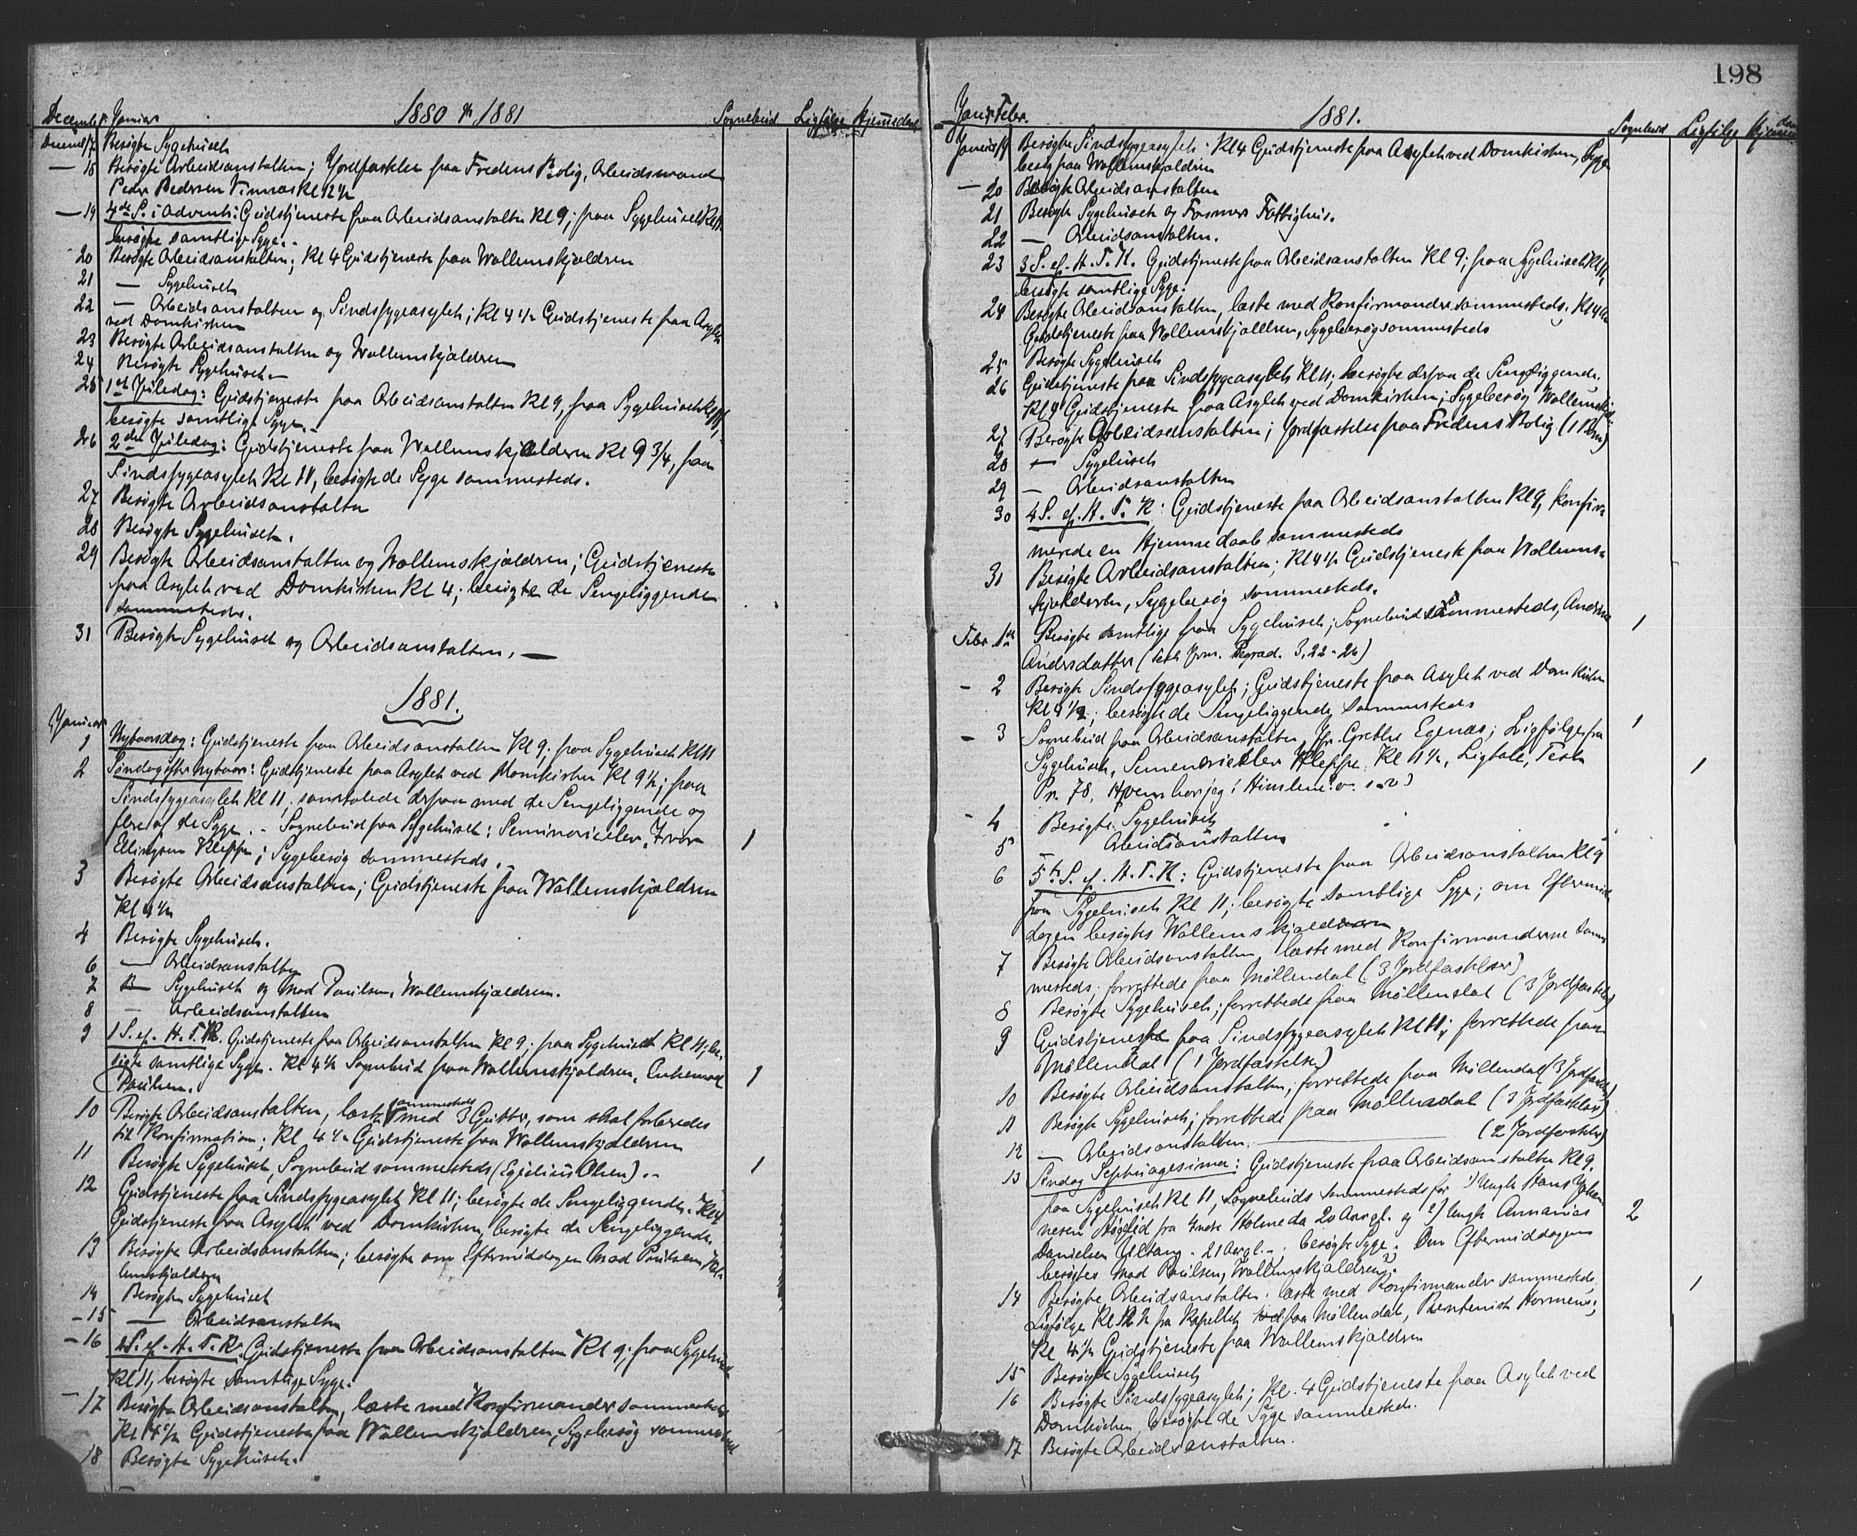 198
December Januar 1880 & 1881 Sognebud Ligfølge Hjemmedaab
Decemb 17 Besøgte Sygehuset
— 18 Besøgte Arbeidsanstalten; Jordfæstelse paa Fredens Bolig, Arbeidsmand
Peder Pedersen Kl 12½
— 19 4de S. i Advent: Gudstjeneste paa Arbeidsanstalten Kl 9; paa Sygehuset Kl 11.
besøgte samtlige Syge.
20 Besøgte Arbeidsanstalten; Kl 4 Gudstjeneste paa Wollemskjældren
21 — Sygehuset
22 — Arbeidsanstalten og Sindssygeasylet; Kl 4½ Gudstjeneste paa Asylet
ved Domkirken
23 Besøgte Arbeidsanstalten og Wollemskjældren
24 Besøgte Sygehuset.—
25 1ste Juledag: Gudstjeneste paa Arbeidsanstalten Kl 9, paa Sygehuset Kl 11,
besøgte samtlige Syge.—
26 2den Juledag: Gudstjeneste paa Wollemskjældren Kl 9 3/4, paa
Sindssygeasylet Kl 11, besøgte de Syge sammesteds.
27 Besøgte Arbeidsanstalten
28 Besøgte Sygehuset.
29 Besøgte Arbeidsanstalten og Wollemskjældren; Gudstjeneste
paa Asylet ved Domkirken Kl 4; besøgte de Sengeliggende
sammesteds.
31 Besøgte Sygehuset og Arbeidsanstalten. —
1881.
Januar
1 Nytaarsdag: Gudstjeneste paa Arbeidsanstalten Kl 9; paa Sygehuset Kl 11
2 Søndag efter Nytaar: Gudstjeneste paa Asylet ved Domkirken Kl 9½; paa
Sindssygeasylet Kl 11, samtalede derpaa med de Sengeliggende og
flere af de Syge. - Sognebud paa Sygehuset: Seminarieelev Iver
Ellingsen Kleppe; Sygebesøg sammesteds.— 1
3 Besøgte Arbeidsanstalten; Gudstjeneste paa Wollemskjældren
Kl 4½
4 Besøgte Sygehuset.
6 — Arbeidsanstalten
7 — Sygehuset og Mad Paulsen, Wollemskjældren.
8 — Arbeidsanstalten
9 1 S. ef. H. T. K. Gudstjeneste paa Arbeidsanstalten Kl 9; paa Sygehuset Kl 11; be-
søgte samtlige Syge. Kl 4½ Sognebud paa Wollemskjældren, Enkemad 1
Paulsen.
10 Besøgte Arbeidsanstalten, læste sammesteds med 3 Gutter, som skal forberedes
til Konfirmation; Kl 4½ Gudstjeneste paa Wollemskjældren
11 Besøgte Sygehuset, Sognebud sammesteds (Egidius Olsen).— 1
12 Gudstjeneste paa Sindssygeasylet Kl 11; besøgte de Sengeliggende. Kl 4
Gudstjeneste paa Asylet ved Domkirken, besøgte de Sengeliggende.
13 Besøgte Arbeidsanstalten; besøgte om Eftermiddagen Mad Paulsen, Wol-
lemskjældren
14 Besøgte Sygehuset
-15 — Arbeidsanstalten
-16 2 S. ef. H. T. K. Gudstjeneste paa Arbeidsanstalten Kl 9; paa Sygehuset
Kl 11, besøgte samtlige Syge.
-17 Besøgte Arbeidsanstalten, læste med Konfirmander sammesteds
Kl 4½ Gudstjeneste paa Wollemskjældren, Sygebesøg sammesteds
18 Besøgte Sygehuset.
Januar Febr. 1881. Sognebud Ligfølge Hjemmedaab
Januar 19 Besøgte Sindssygeasylet. Kl 4 Gudstjeneste paa Asylet ved Domkirken, Syge-
besøg paa Wollemskjældren
— 20 Besøgte Arbeidsanstalten
21 Besøgte Sygehuset og Fattighus.
22 — Arbeidsanstalten.
23 3 S. ef. H. T. K. Gudstjeneste paa Arbeidsanstalten Kl 9; paa Sygehuset Kl 11,
besøgte samtlige Syge.
24 Besøgte Arbeidsanstalten, læste med Konfirmander sammesteds. Kl 4½
Gudstjeneste paa Wollemskjældren, Sygebesøg sammesteds
25 Besøgte Sygehuset
26 Gudstjeneste paa Sindssygeasylet Kl 11; besøgte derpaa de Sengeliggende.
Kl 4 Gudstjeneste paa Asylet ved Domkirken; Sygebesøg Wollemskjæld.
27 Besøgte Arbeidsanstalten; Jordfæstelse paa Fredens Bolig (1 Barn)
28 — Sygehuset
29 — Arbeidsanstalten
30 4 S. ef. H. T. K: Gudstjeneste paa Arbeidsanstalten Kl 9, konfir-
merede en Hjemmedaab sammesteds
31 Besøgte Arbeidsanstalten; Kl 4½ Gudstjeneste paa Wollems-
kjældren, Sygebesøg sammesteds.
Febr. 1ste Besøgte samtlige paa Sygehuset; Sognebud sammesteds, 1
Andersdatter ( 3, 22-26)
- 2 Besøgte Sindssygeasylet; Gudstjeneste paa Asylet ved Domkirken
Kl 4½; besøgte de Sengeliggende sammesteds
- 3 Sognebud paa Arbeidsanstalten, Grethe Egenæs; Ligfølge fra 1
Sygehuset, Seminarieelev Kleppe Kl 11½, Ligtale, Text 1
Ps. 73. Hvem har jeg i Himlen o. s. v)
- 4 Besøgte Sygehuset
5 — Arbeidsanstalten
6 5te S. ef. H. T. K: Gudstjeneste paa Arbeidsanstalten Kl 9
paa Sygehuset Kl 11; besøgte samtlige Syge; om Eftermid-
dagen besøgtes Wollemskjældren
7 Besøgte Arbeidsanstalten, læste med Konfirmanderne sam-
mesteds. forrettede paa Møllendal (3 Jordfæstelser)
8 Besøgte Sygehuset; forrettede paa Møllendal (3 Jordfæstelser)
9 Gudstjeneste paa Sindssygeasylet Kl 11; forrettede paa
Møllendal (1 Jordfæstelse)
10 Besøgte Arbeidsanstalten; forrettede paa Møllendal (3 Jordfæstelser)
11 Besøgte Sygehuset; forrettede paa Møllendal (3 Jordfæstelser)
12 — Arbeidsanstalten. — (2 Jordfæstelser)
13 Søndag Septuagesima: Gudstjeneste paa Arbeidsanstalten Kl 9.
paa Sygehuset Kl 11, Sognebuds sammesteds for 1) Ungk Hans Johan-
nesen fra Indre Holmedal 20 Aar gl. og 2) Ungk Annanias 2
Danielsen - 21 Aar gl.-; besøgte Syge. Om Eftermiddagen
besøgtes Mad Paulsen, Wollemskjældren.
14 Besøgte Arbeidsanstalten. læste med Konfirmander sammesteds. 1
Ligfølge Kl 12½ fra Kapellet paa Møllendal, Hermens;
Kl 4½ Gudstjeneste paa Wollemskjældren
15 Besøgte Sygehuset
16 Besøgte Sindssygeasylet; Kl. 4 Gudstjeneste paa Asylet ved
Domkirken, besøgte de Syge sammesteds.
17 Besøgte Arbeidsanstalten.